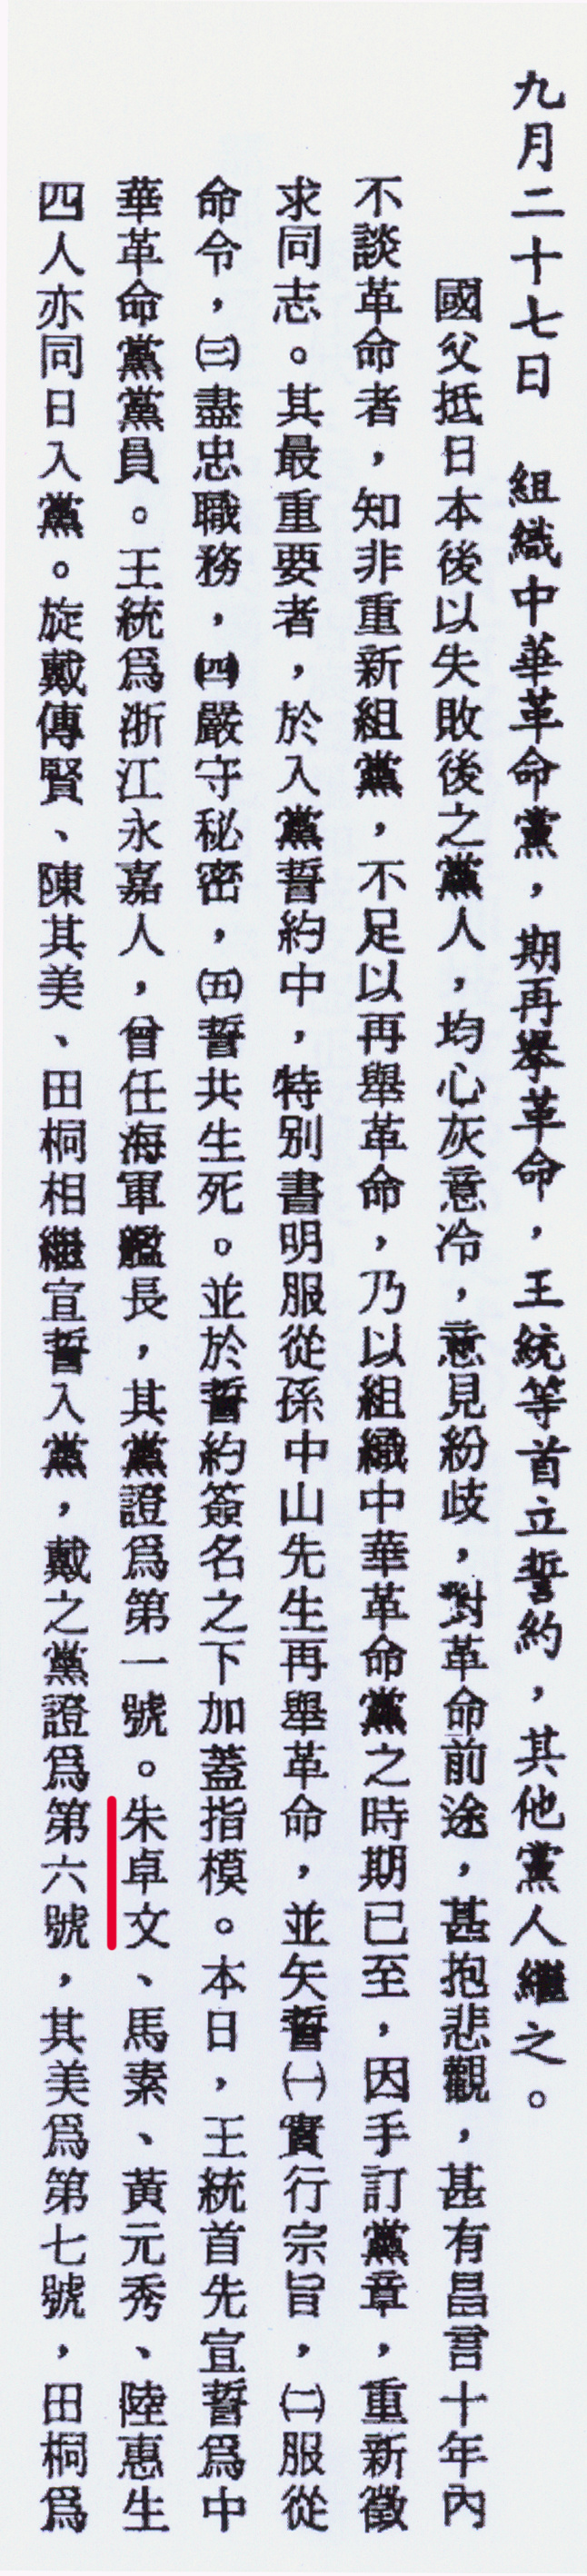 九月二十七日　組織中華革命黨，期再舉革命，王統等首立誓約，其他黨人繼之。
國父抵日本後以失敗後之黨人，均心灰意冷，意見紛歧，對革命前途，甚抱悲觀，甚有昌言十年內
不談革命者，知非重新組黨，不足以再舉革命，乃以組織中華革命黨之時期已至，因手訂黨章，重新徵
求同志。其最重要者，於入黨誓約中，特別書明服從孫中山先生再舉革命，並矢誓㈠實行宗旨，㈡服從
命令，㈢盡忠職務，㈣嚴守秘密，㈤誓共生死。並於誓約簽名之下加蓋指模。本日，王統首先宣誓爲中
華革命黨黨員。王統爲浙江永嘉人，曾任海軍艦長，其黨證爲第一號。朱卓文、馬素、黃元秀、陸惠生
四人亦同日入黨。旋戴傳賢、陳其美、田桐相繼宣誓入黨，戴之黨證爲第六號，其美爲第七號，田桐爲